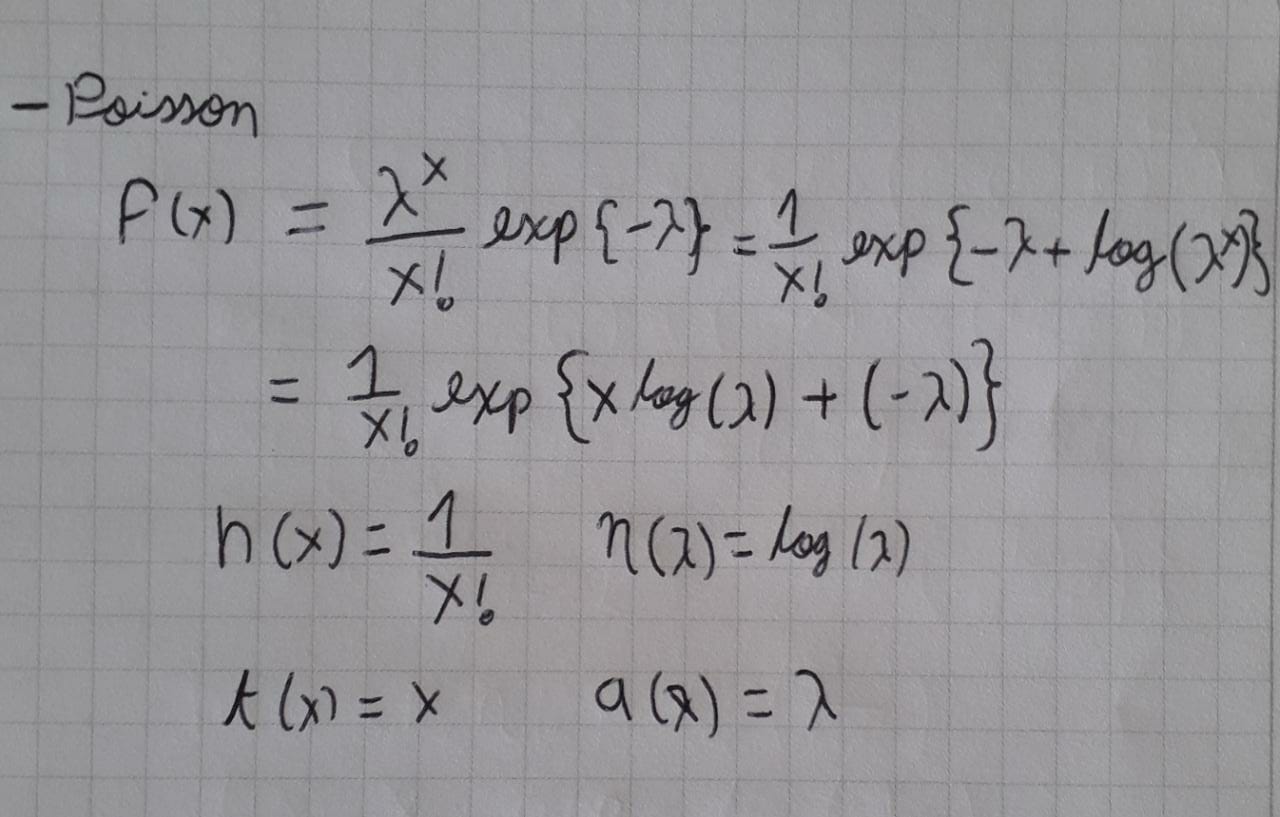 - Poisson
f(x) = λ^x/x! exp{-λ} = 1/x! exp{-λ + log(λ^x)}
= 1/x! exp{x log(λ) + (-λ)}
h(x) = 1/x! η(λ) = log(λ)
t(x) = x a(λ) = λ